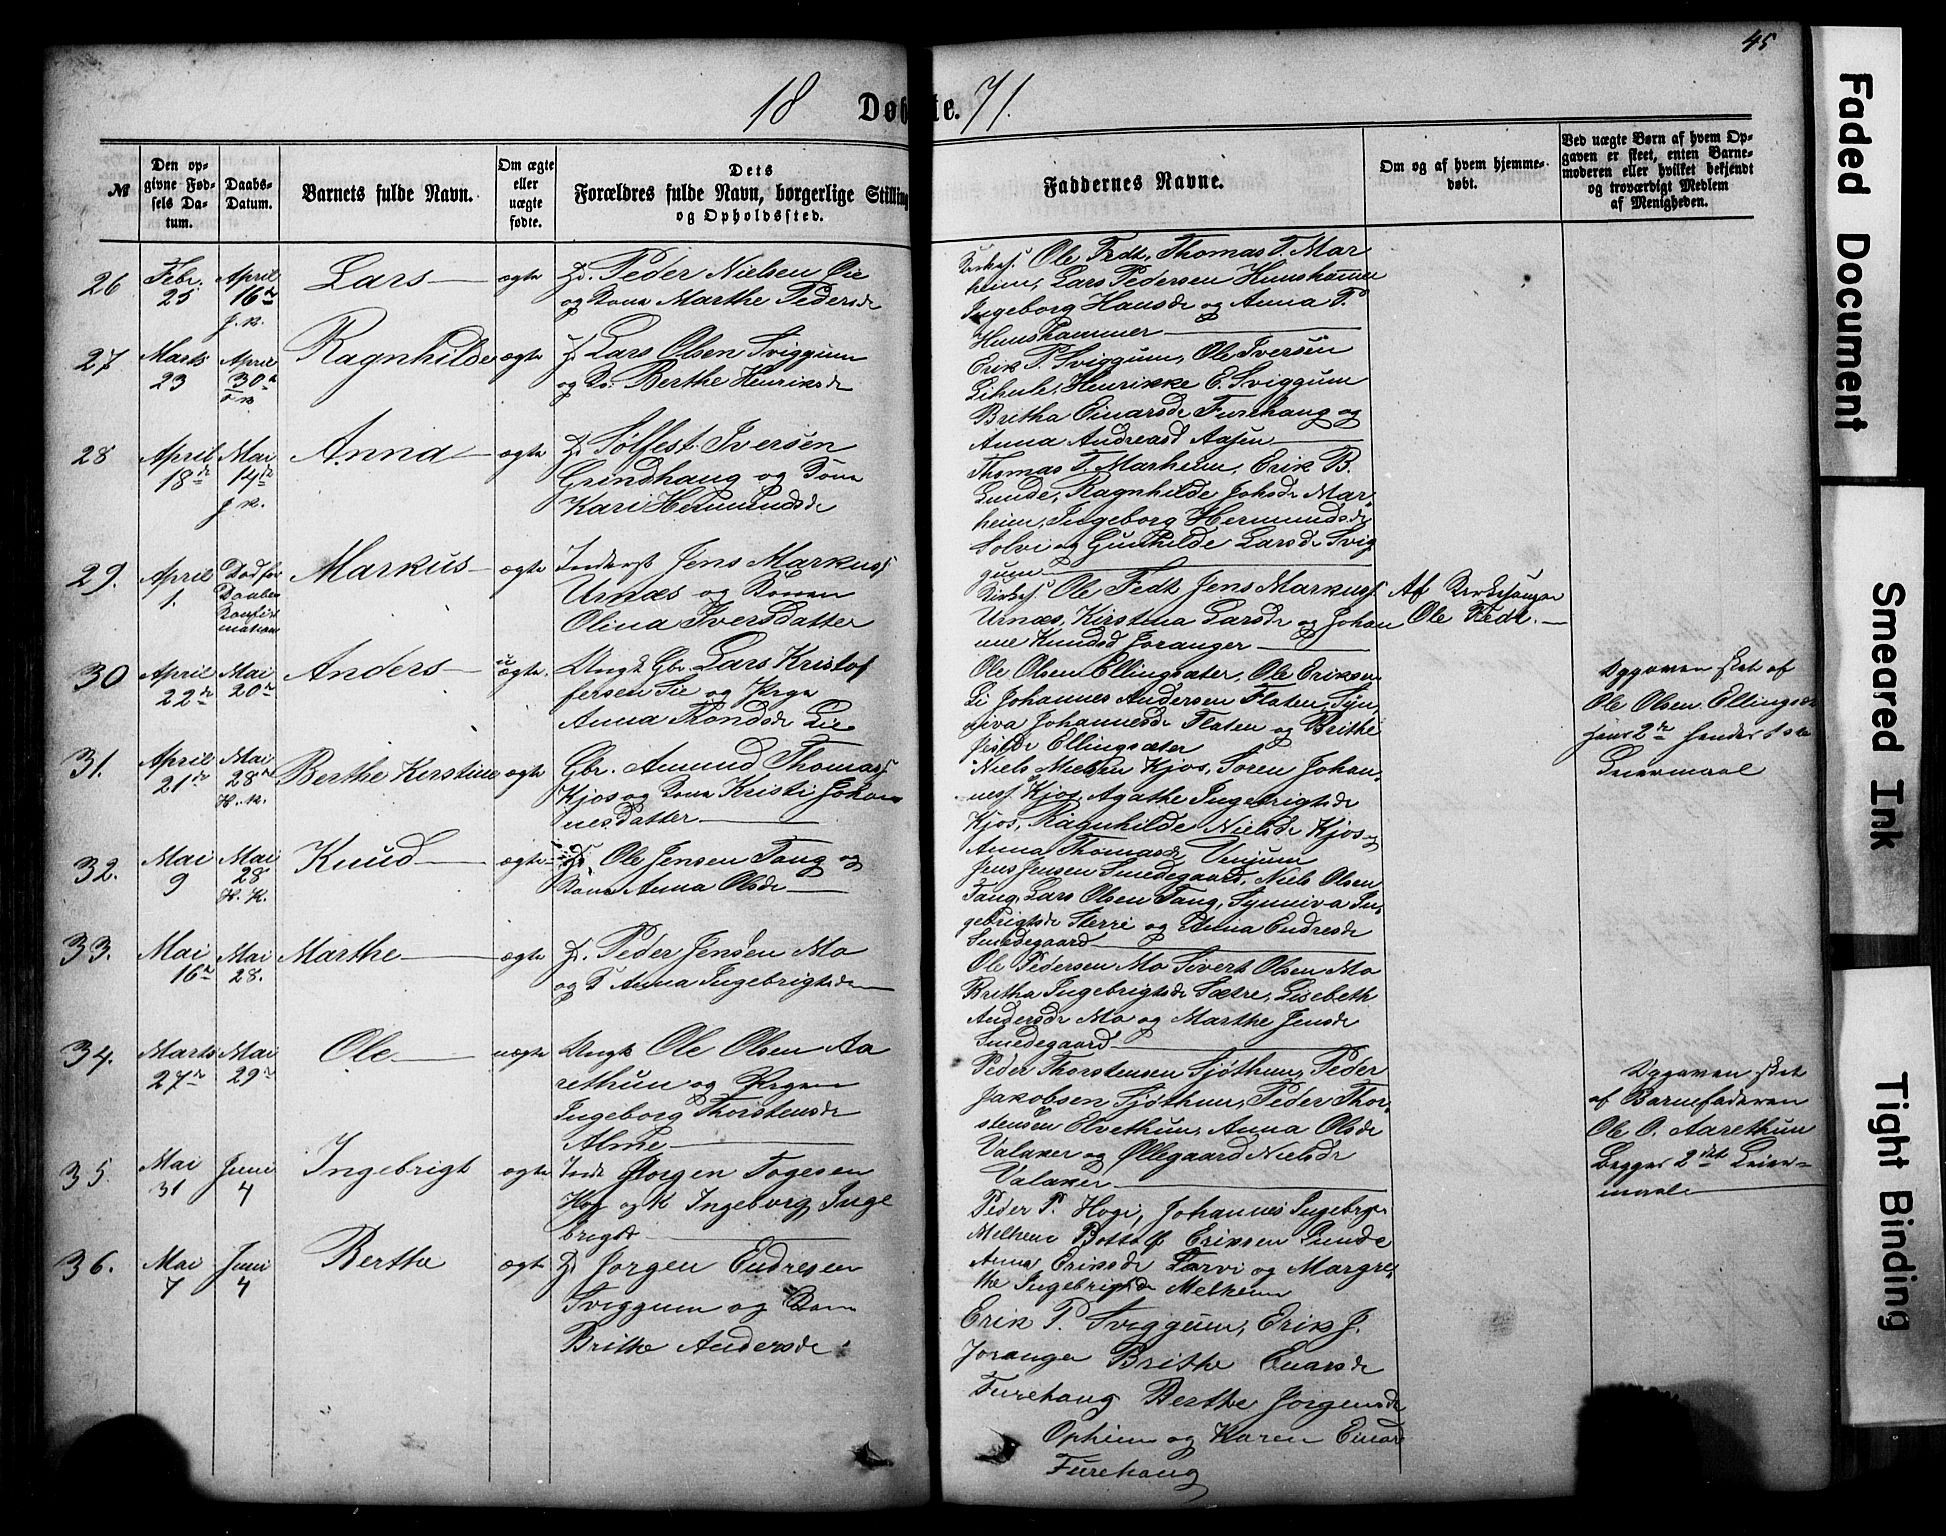 45
18 Døbte. 71.
№
Den op-
givne Fød-
sels Da-
tum.
Daabs-
Datum.
Barnets fulde Navn.
Om ægte
eller
uægte
fødte.
Dets
Forældres fulde Navn, borgerlige Stilling
og Opholdssted.
Faddernes Navne.
Om og af hvem hjemme-
døbt.
Ved uægte Børn af hvem Op-
gaven er skeet, enten Barne-
moderen eller hvilket bekjendt
og troværdigt Medlem
af Menigheden.
26
Febr.
25
April
16de
J. K.
Lars
ægte
Peder Nielsen
og Kone Marthe Pedersdr
Kirkes. Ole Fedt, Thomas T. Mar
heim, Lars Pedersen Hunshammer
Ingeborg Hansdr og Anna P.
Hunshammer
27
Marts
23
April
30te
Ragnhilde
ægte
Lars Olsen Sviggum
og K. Berthe Henriksdr
Erik P. Sviggum, Ole Iversen
Lihule, Henrikke E. Sviggum
Britha Einarsdr Furehaug og
Anna Andreasd Aasen
28
April
18de
Mai
14de
J. K.
Anna
ægte
Sølfest Iversen
Grindshaug og Kone
Kari Hermundsdr
Thomas T. Marheim, Erik B.
Lunde, Ragnhilde Johsdr Mar-
heim, Ingeborg Hermundsdr
Solvi og Gunhilde Larsdr Svig
gum
29.
April
1.
Død før
Daabens
Konfir
mation
Markus
ægte
Inderst Jens Markuss
Urnæs og Konen
Olina Iversdatter
Kirkes. Ole Fedt, Jens Markuss
Urnæs, Kirstina Larsdr og Johan
ne Knudsd Joranger
Af Kirkesanger
Ole Fedt.
30
April
22de
Mai
20de
Anders
uægte
Ungk. Gbr. Lars Kristof
fersen Lie og Pige
Anna Trondsdr Lie
Ole Olsen Ellingsæter, Ole Eriksen
Li Johannes Andersen Flaten, Syn
niva Johannesdr Flaten og Brithe
Ellingsæter
Opgaven sket af
Ole Olsen Ellingsæ
hans 2de hendes 1ste
Leiermaal
31.
April
21de
Mai
28de
H. K.
Berthe Kirstine
ægte
Gbr. Amund Thomass
Kjos og Kone Kristi Johan
nesdatter
Niels Nielsen Kjos, Søren Johan-
ness Kjos, Agathe Ingebrigtsdr
Kjos, Ragnhilde Nielsdr Kjos og
Anna Thomasdr Venjum
32.
Mai
9
Mai
28
H. K.
Knud
ægte
Ole Jensen Tang og
Kone Anna Olsdr
Jens Jensen Smedegaard, Niels Olsen
Tang, Lars Olsen Tang, Synniva In-
gebrigtsdr Sterri og Anna Endresdr
Smedegaard
33.
Mai
16de
Mai
28.
Marthe
ægte
Peder Jensen Mo
og K Anna Ingebrigtsdr
Ole Pedersen Mo Sivert Olsen Mo
Britha Ingebrigtsdr Sætre, Lisebeth
Andersdr Mo og Marthe Jensdr
Smedegaard
34.
Marts
27de
Mai
29de
Ole
uægte
Ungk. Ole Olsen Aa
rethun og Pigen
Ingeborg Thorstensdr
Alme
Peder Thorstensen Sjøthun, Peder
Jakobsen Sjøthun, Peder Thor-
stensen Elvethun, Anna Olsdr
Valaker og Øllegaard Nielsdr
Valaker
Opgaven sket
af Barnefaderen
Ole O. Aarethun
Begges 2det Leier-
maal
35.
Mai
31
Juni
4
Ingebrigt
ægte
Ind. Jørgen Togesen
Hog og K Ingeborg Inge
brigsd
Peder P. Hogi, Johannes Ingebrgs
Melheim Bottolf Eriksen Lunde
Anna Eriksdr Tarvi og Margre-
the Ingebrigtsdr Melheim
36.
Mai
7
Juni
4
Berthe
ægte
Jørgen Endresen
Sviggum og Kone
Brithe Andersdr
Erik P. Sviggum, Erik J.
Joranger Brithe Enarsdr
Furehaug Berthe Jørgensdr
Opheim og Karen Einars
Furehaug
Faded Document
Smeared Ink
Tight Binding